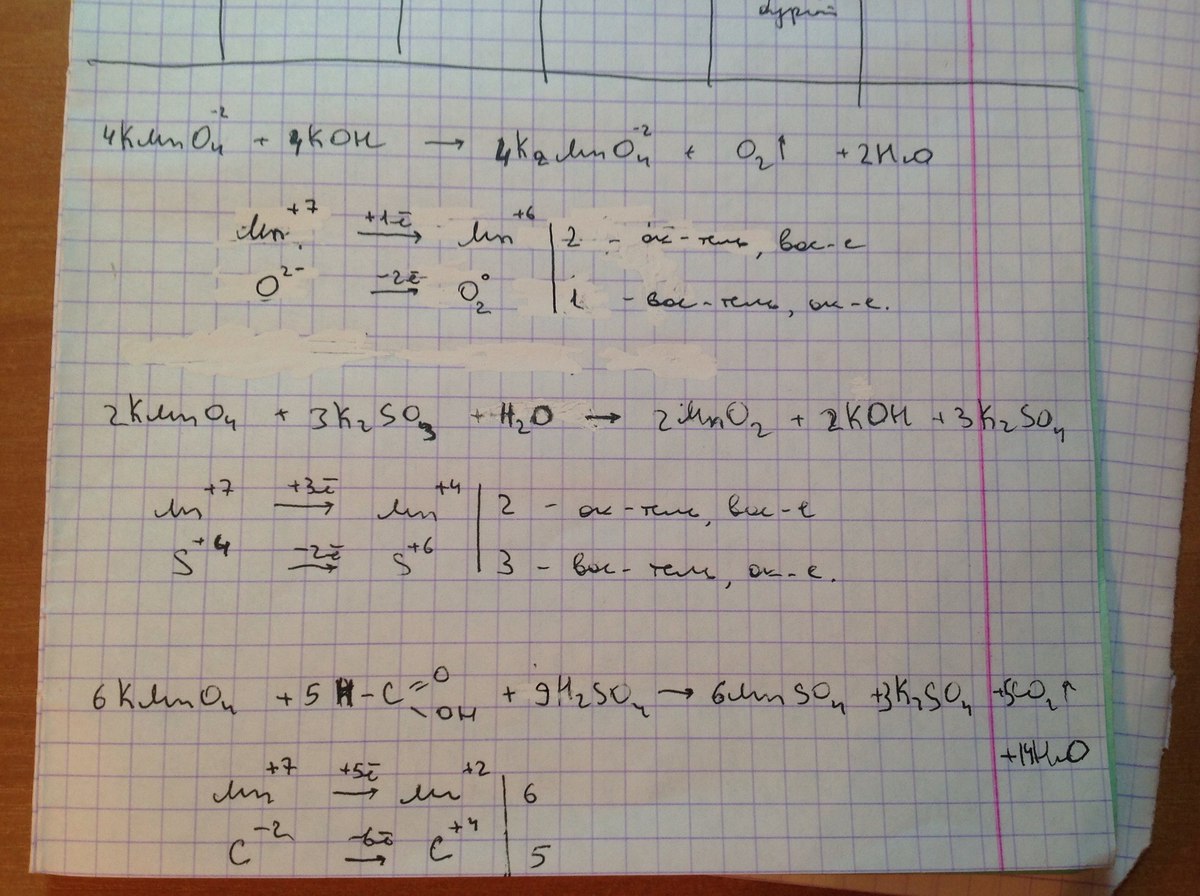 бурый
4KMnO₄⁻² + 4KOH → 4K₂MnO₄⁻² + O₂↑ + 2H₂O
Mn⁺⁷ +1ē→ Mn⁺⁶ | 2 - ок-тель, вос-е
O²⁻ -2ē→ O₂⁰ | 1 - вос-тель, ок-е.
2KMnO₄ + 3K₂SO₃ + H₂O → 2MnO₂ + 2KOH + 3K₂SO₄
Mn⁺⁷ +3ē→ Mn⁺⁴ | 2 - ок-тель, вос-е
S⁺⁴ -2ē→ S⁺⁶ | 3 - вос-тель, ок-е.
6KMnO₄ + 5 H-C=O -OH + 9H₂SO₄ → 6MnSO₄ + 3K₂SO₄ + 5CO₂↑
+14H₂O
Mn⁺⁷ +5ē→ Mn⁺² | 6
C⁻² -6ē→ C⁺⁴ | 5